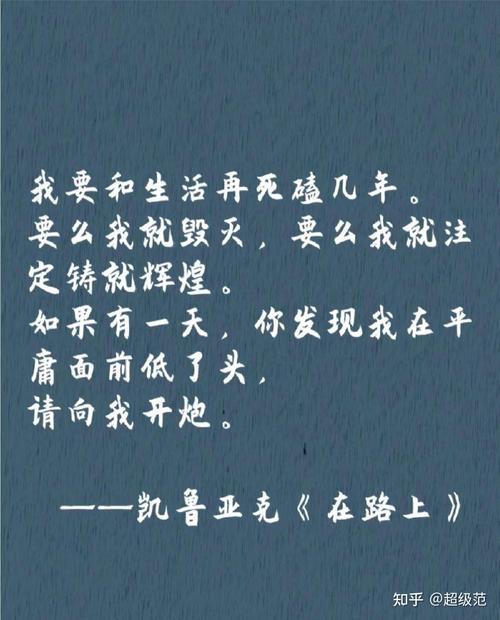 我要和生活再死磕几年。
要么我就毁灭，要么我就注
定铸就辉煌。
如果有一天，你发现我在平
庸面前低了头，
请向我开炮。
——凯鲁亚克《在路上》
知乎 @超级范